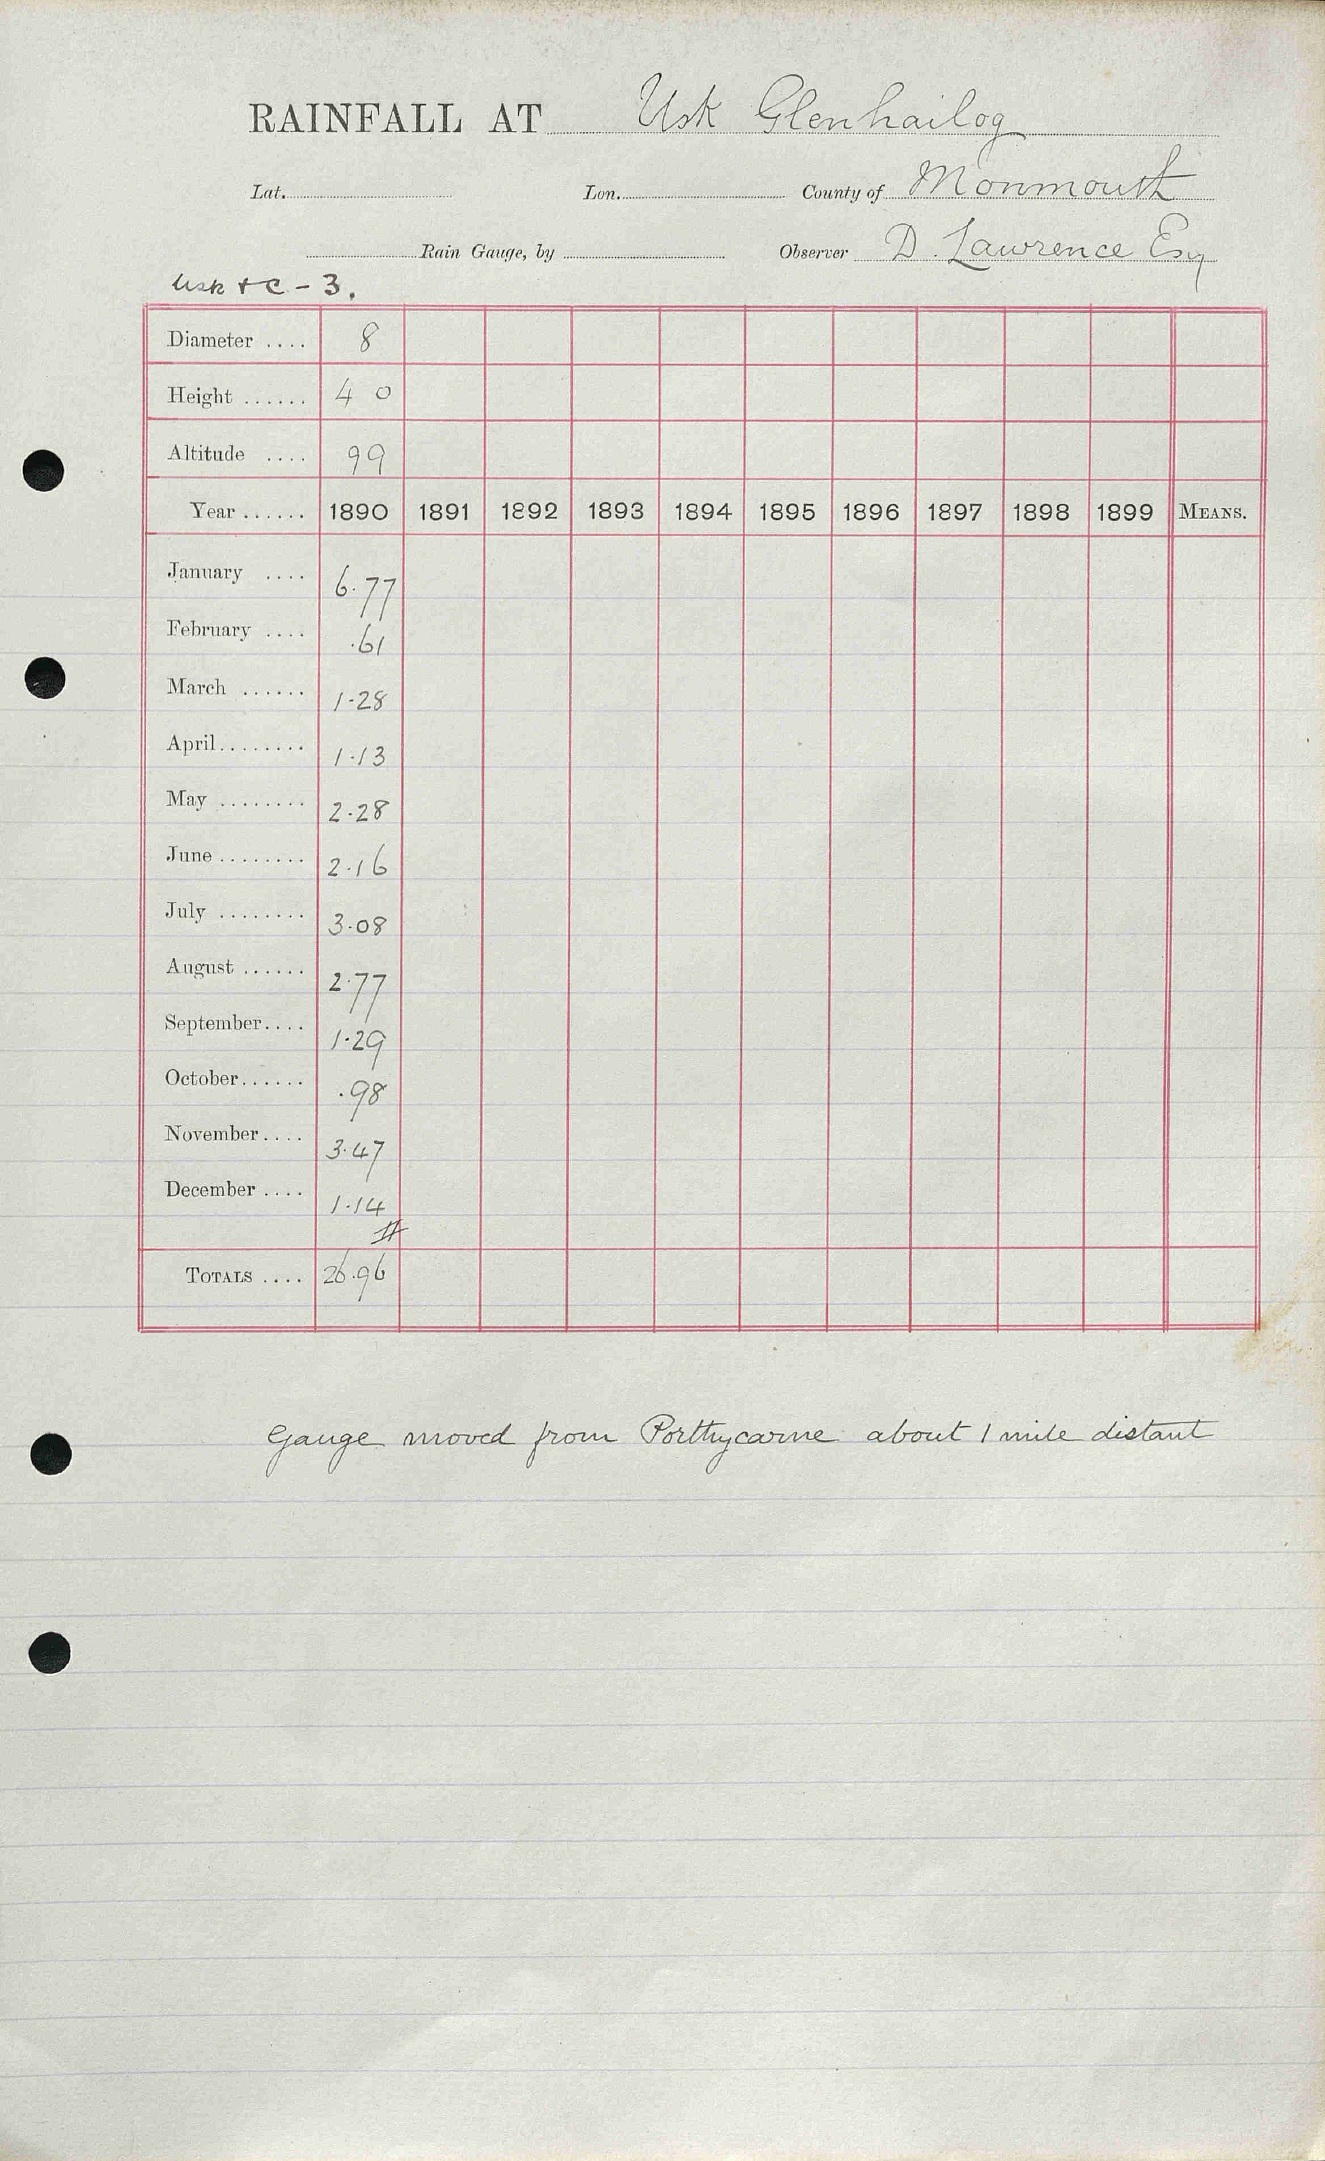 RAINFALL AT Usk Glenhailog
Lat. Lon. County of Monmouth
Rain Gauge, by Observer D. Lawrence Esq
Usk + C - 3.
Diameter .... 8
Height ...... 4 0
Altitude .... 99
Year ...... 1890 1891 1892 1893 1894 1895 1896 1897 1898 1899 MEANS.
January .... 6.77
February .... .61
March ...... 1.28
April........ 1.13
May ........ 2.28
June ........ 2.16
July ........ 3.08
August ...... 2.77
September.... 1.29
October...... .98
November.... 3.47
December .... 1.14
#
TOTALS .... 26.96
Gauge moved from Porthycarne about 1 mile distant